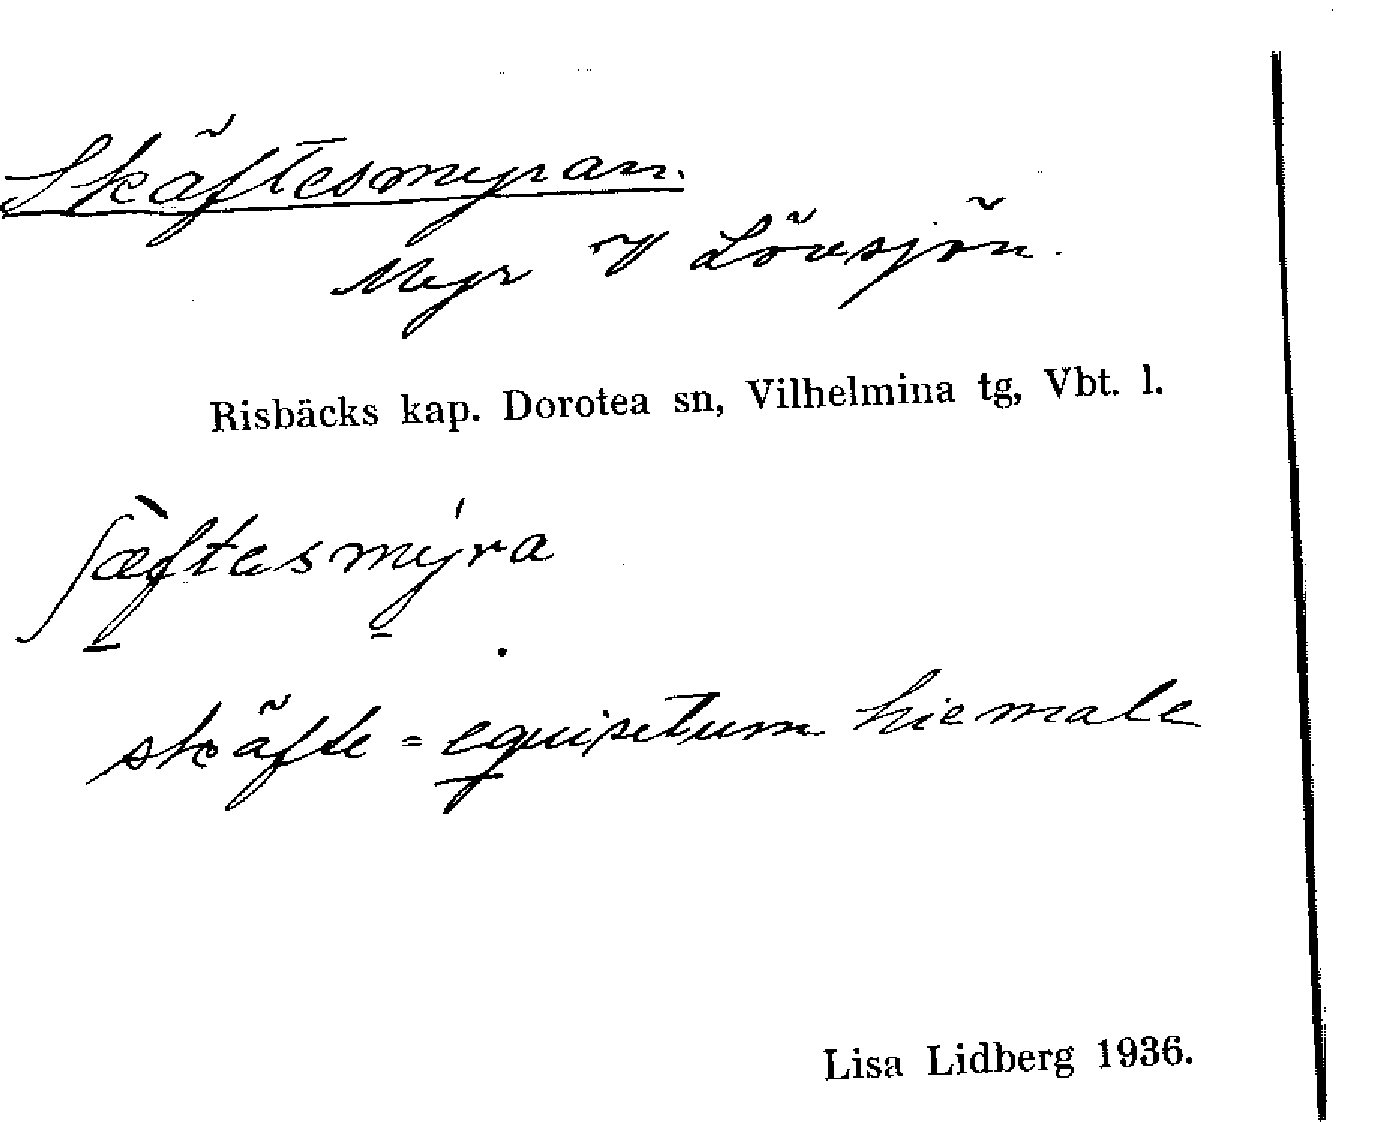 Skäftesmyran.
Myr v Lövsjön.
Risbäcks kap. Dorotea sn, Vilhelmina tg, Vbt. l.
ʃæ̀ftesmýra
skäfte = equisetum hiemale
Lisa Lidberg 1936.